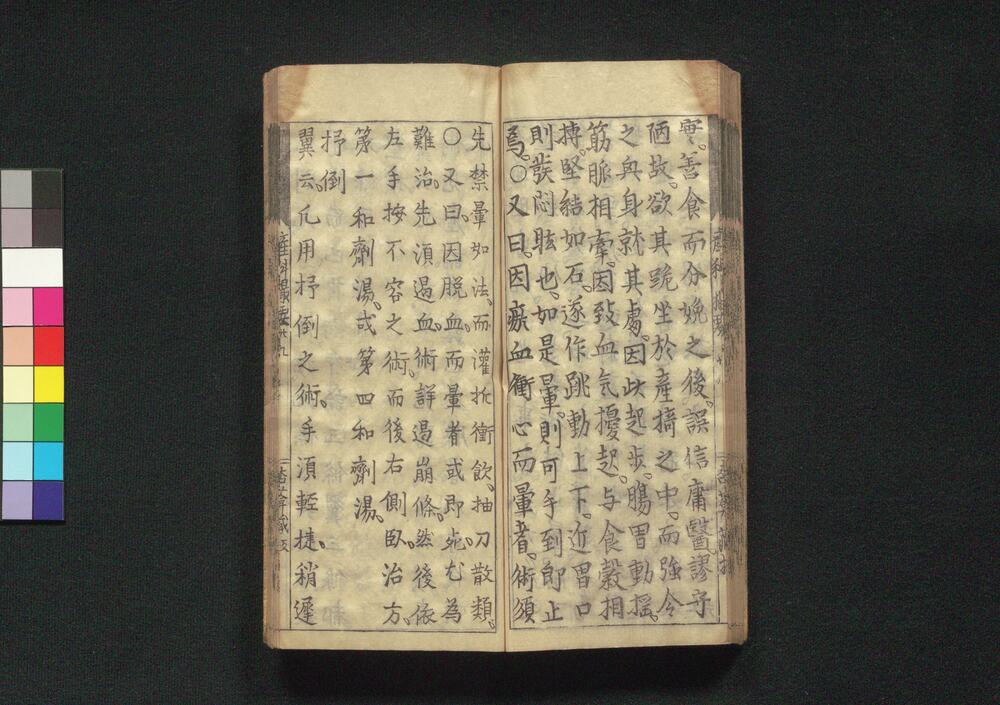 寒。善食而分娩之後。誤信庸醫謬守
陋故。欲其跪坐於產掎之中。而強令
之與身就其處。因此起步。腸胃動搖。
筋脈相牽。因致血気擾起。与食穀相
搏。堅結如石。遂作跳動上下。近胃口
則發悶眩也。如是暈。則可手到即止
焉。○又曰。因瘀血衝心而暈者。術須
先禁暈如法。而灌折衝飲。抽刀散類。
○又曰。因脫血。而暈者或即死。尤為
難治。先須遏血。術詳遏崩條。然後依
左手按不容之術。而後右側臥。治方。
第一和劑湯。或第四和劑湯。
抒倒
翼云。凡用抒倒之術。手須輕捷。稍遲
產科撮要 廿九